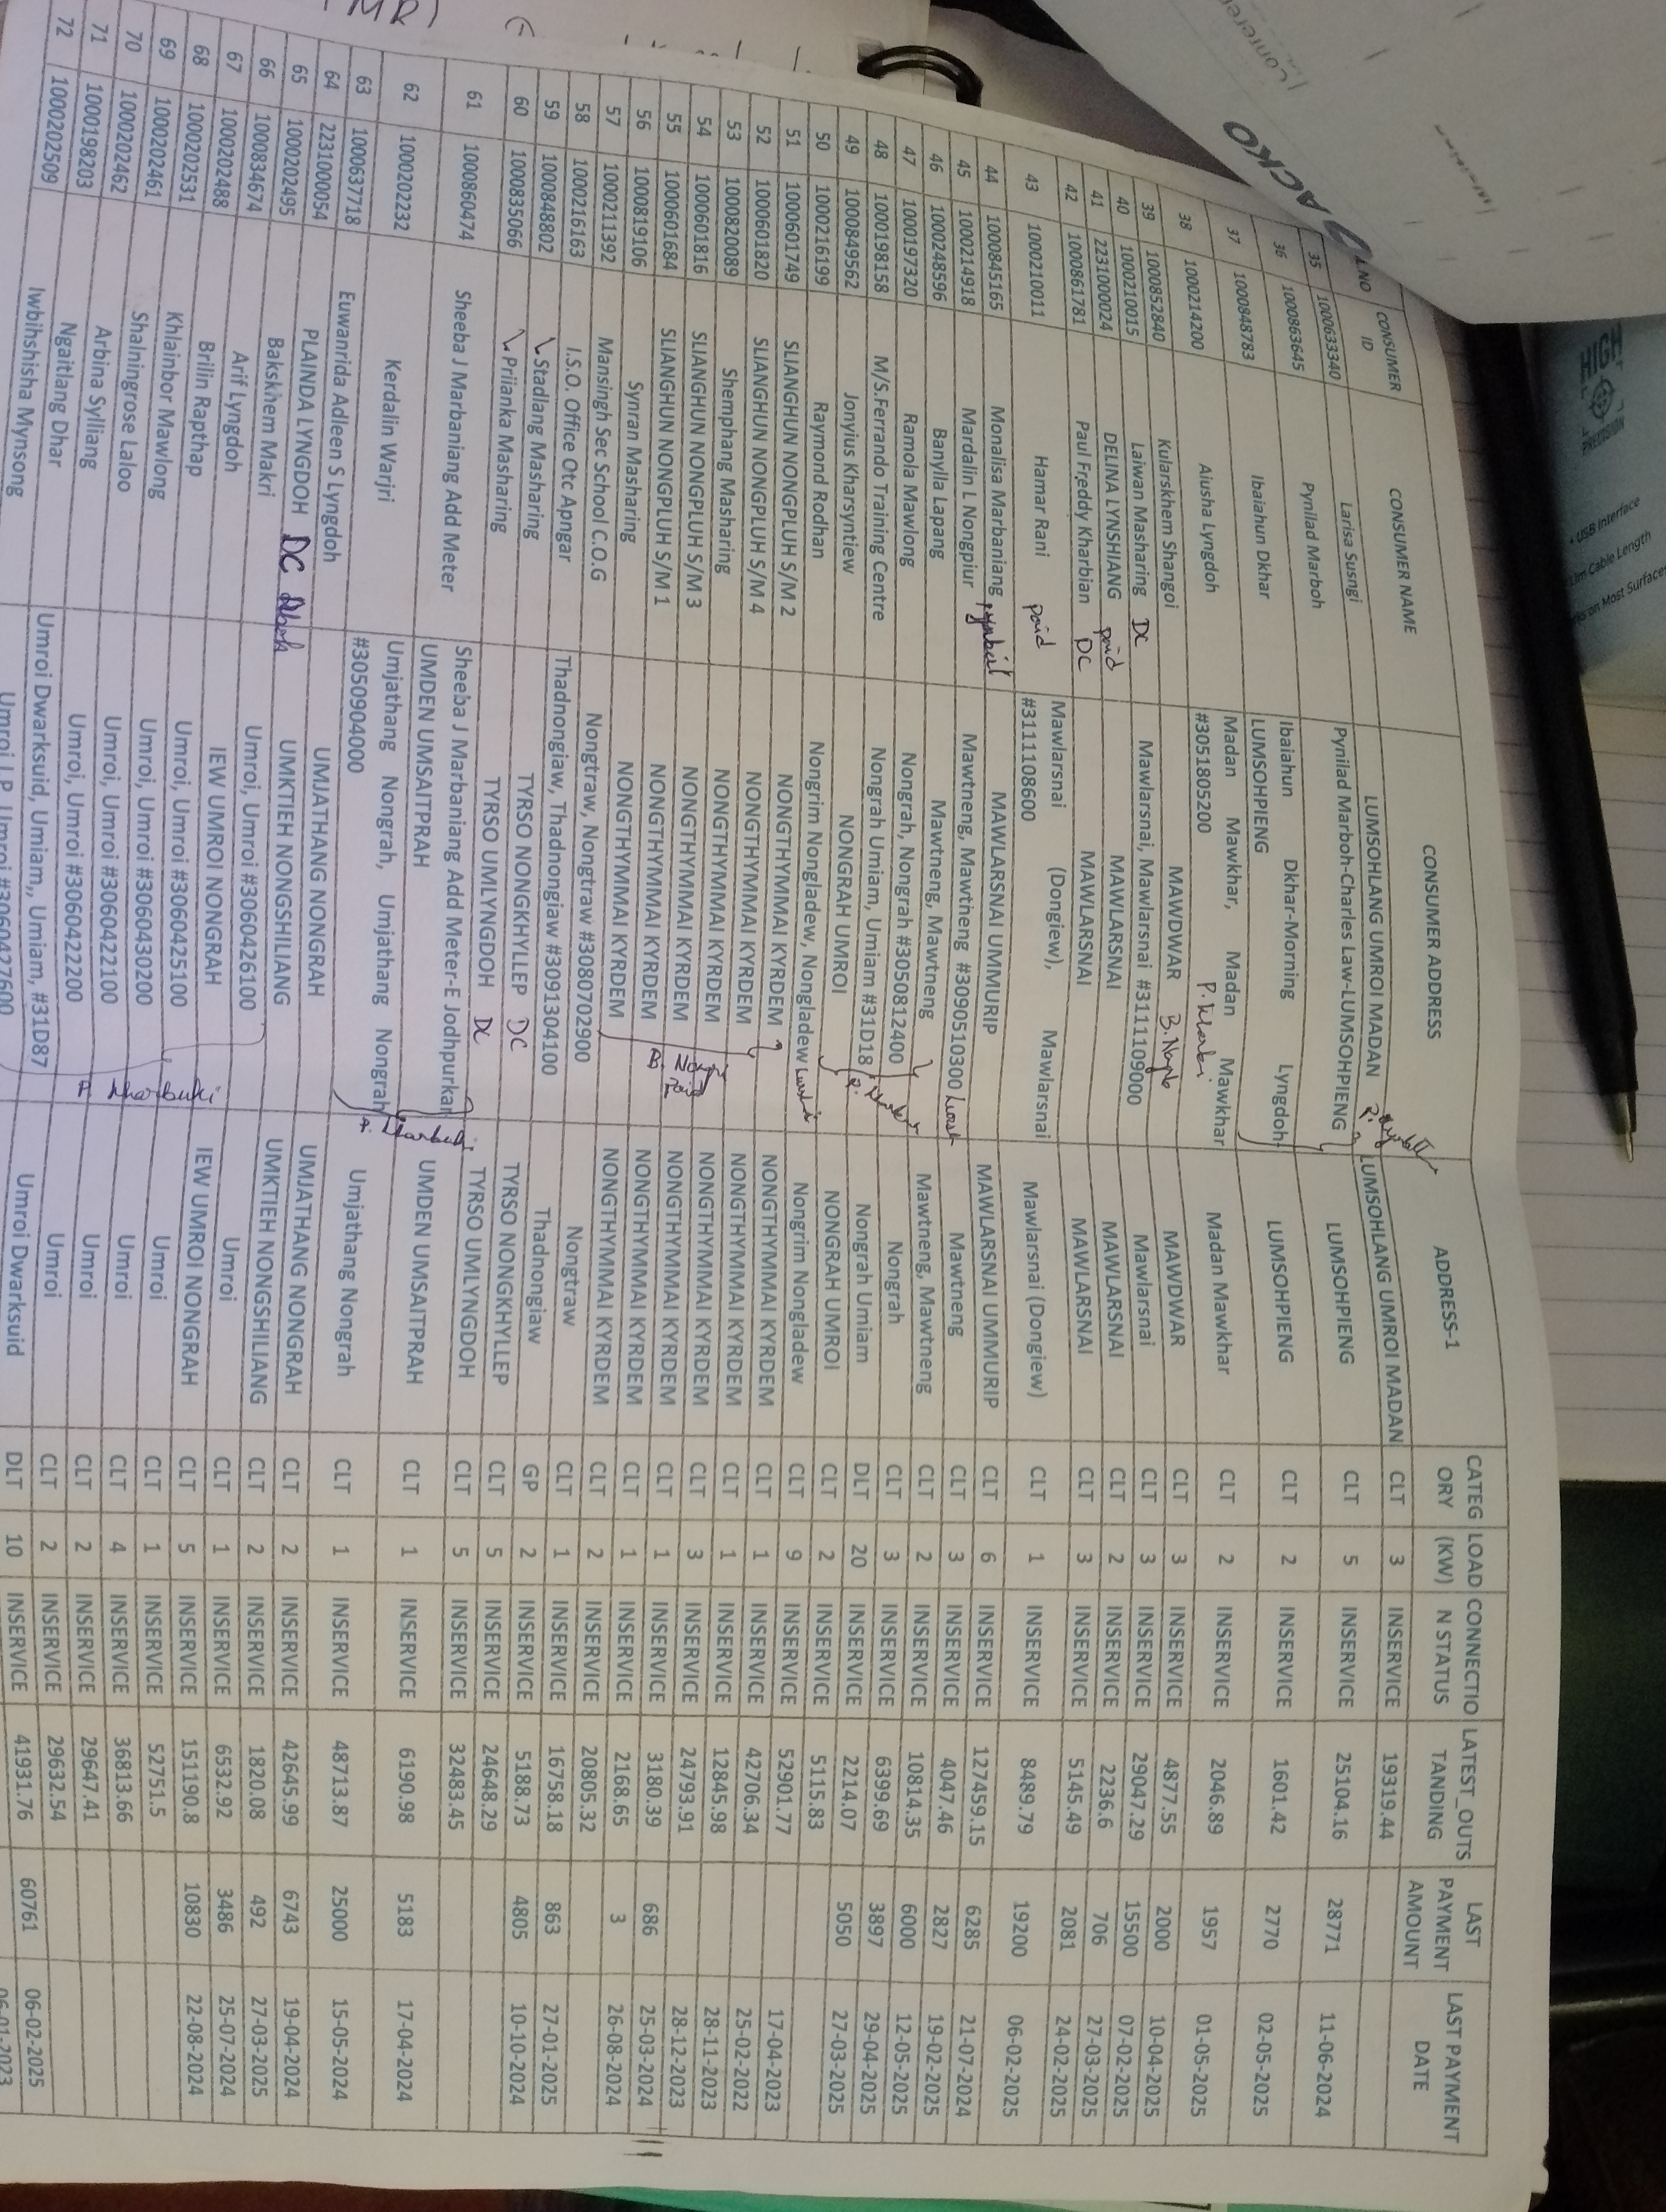 L.NO CONSUMER ID CONSUMER NAME CONSUMER ADDRESS ADDRESS-1 CATEGORY LOAD (KW) CONNECTION STATUS LATEST_OUTSTANDING LAST PAYMENT AMOUNT LAST PAYMENT DATE
35 1000633340 Larisa Susngi LUMSOHLANG UMROI MADAN LUMSOHLANG UMROI MADAN CLT 3 INSERVICE 19319.44
36 1000863645 Pynilad Marboh Pynilad Marboh-Charles Law-LUMSOHPIENG LUMSOHPIENG CLT 5 INSERVICE 25104.16 28771 11-06-2024
37 1000848783 Ibaiahun Dkhar Ibaiahun Dkhar-Morning Lyngdoh LUMSOHPIENG LUMSOHPIENG CLT 2 INSERVICE 1601.42 2770 02-05-2025
38 1000214200 Aiusha Lyngdoh Madan Mawkhar, Madan Mawkhar #3051805200 P. Kharbuki Madan Mawkhar CLT 2 INSERVICE 2046.89 1957 01-05-2025
39 1000852840 Kularskhem Shangoi MAWDWAR MAWDWAR CLT 3 INSERVICE 4877.55 2000 10-04-2025
40 1000210015 Laiwan Masharing DC Mawlarsnai, Mawlarsnai #3111109000 Mawlarsnai CLT 3 INSERVICE 29047.29 15500 07-02-2025
41 2231000024 DELINA LYNSHIANG paid MAWLARSNAI MAWLARSNAI CLT 2 INSERVICE 2236.6 706 27-03-2025
42 1000861781 Paul Freddy Kharbian DC MAWLARSNAI MAWLARSNAI CLT 3 INSERVICE 5145.49 2081 24-02-2025
43 1000210011 Hamar Rani paid Mawlarsnai (Dongiew), Mawlarsnai #3111108600 Mawlarsnai (Dongiew) CLT 1 INSERVICE 8489.79 19200 06-02-2025
44 1000845165 Monalisa Marbaniang MAWLARSNAI UMMURIP MAWLARSNAI UMMURIP CLT 6 INSERVICE 127459.15 6285 21-07-2024
45 1000214918 Mardalin L Nongpiur Mawtneng, Mawtneng #3090510300 Mawtneng CLT 3 INSERVICE 4047.46 2827 19-02-2025
46 1000248596 Banylla Lapang Mawtneng, Mawtneng Mawtneng, Mawtneng CLT 2 INSERVICE 10814.35 6000 12-05-2025
47 1000197320 Ramola Mawlong Nongrah, Nongrah #3050812400 Nongrah CLT 3 INSERVICE 6399.69 3897 29-04-2025
48 1000198158 M/S.Ferrando Training Centre Nongrah Umiam, Umiam #31D18 Nongrah Umiam DLT 20 INSERVICE 2214.07 5050 27-03-2025
49 1000849562 Jonyius Kharsyntiew NONGRAH UMROI NONGRAH UMROI CLT 2 INSERVICE 5115.83
50 1000216199 Raymond Rodhan Nongrim Nongladew, Nongladew Nongrim Nongladew CLT 9 INSERVICE 52901.77 17-04-2023
51 1000601749 SLIANGHUN NONGPLUH S/M 2 NONGTHYMMAI KYRDEM NONGTHYMMAI KYRDEM CLT 1 INSERVICE 42706.34 25-02-2022
52 1000601820 SLIANGHUN NONGPLUH S/M 4 NONGTHYMMAI KYRDEM NONGTHYMMAI KYRDEM CLT 1 INSERVICE 12845.98 28-11-2023
53 1000820089 Shemphang Masharing NONGTHYMMAI KYRDEM NONGTHYMMAI KYRDEM CLT 3 INSERVICE 24793.91 28-12-2023
54 1000601816 SLIANGHUN NONGPLUH S/M 3 NONGTHYMMAI KYRDEM NONGTHYMMAI KYRDEM CLT 1 INSERVICE 3180.39 686 25-03-2024
55 1000601684 SLIANGHUN NONGPLUH S/M 1 NONGTHYMMAI KYRDEM NONGTHYMMAI KYRDEM CLT 1 INSERVICE 2168.65 3 26-08-2024
56 1000819106 Synran Masharing NONGTHYMMAI KYRDEM NONGTHYMMAI KYRDEM CLT 2 INSERVICE 20805.32
57 1000211392 Mansingh Sec School C.O.G Nongtraw, Nongtraw #3080702900 Nongtraw CLT 1 INSERVICE 16758.18 863 27-01-2025
58 1000216163 I.S.O. Office Otc Apngar Thadnongiaw, Thadnongiaw #3091304100 Thadnongiaw GP 2 INSERVICE 5188.73 4805 10-10-2024
59 1000848802 Stadlang Masharing TYRSO NONGKHYLLEP DC TYRSO NONGKHYLLEP CLT 5 INSERVICE 24648.29
60 1000835066 Priianka Masharing TYRSO UMLYNGDOH DC TYRSO UMLYNGDOH CLT 5 INSERVICE 32483.45
61 1000860474 Sheeba J Marbaniang Add Meter Sheeba J Marbaniang Add Meter-E Jodhpurkar UMDEN UMSAITPRAH UMDEN UMSAITPRAH CLT 1 INSERVICE 6190.98 5183 17-04-2024
62 1000202232 Kerdalin Warjri Umjathang Nongrah, Umjathang Nongrah #3050904000 P. Kharbuki Umjathang Nongrah CLT 1 INSERVICE 48713.87 25000 15-05-2024
63 1000637718 Euwanrida Adleen S Lyngdoh UMJATHANG NONGRAH UMJATHANG NONGRAH CLT 2 INSERVICE 42645.99 6743 19-04-2024
64 2231000054 PLAINDA LYNGDOH DC UMKTIEH NONGSHILIANG UMKTIEH NONGSHILIANG CLT 2 INSERVICE 1820.08 492 27-03-2025
65 1000202495 Bakskhem Makri Umroi, Umroi #3060426100 Umroi CLT 1 INSERVICE 6532.92 3486 25-07-2024
66 1000834674 Arif Lyngdoh IEW UMROI NONGRAH IEW UMROI NONGRAH CLT 5 INSERVICE 151190.8 10830 22-08-2024
67 1000202488 Brilin Rapthap Umroi, Umroi #3060425100 Umroi CLT 1 INSERVICE 52751.5
68 1000202531 Khlainbor Mawlong Umroi, Umroi #3060430200 Umroi CLT 4 INSERVICE 36813.66
69 1000202461 Shalningrose Laloo Umroi, Umroi #3060422100 P. Kharbuki Umroi CLT 2 INSERVICE 29647.41
70 1000202462 Arbina Sylliang Umroi, Umroi #3060422200 Umroi CLT 2 INSERVICE 29632.54
71 1000198203 Ngaitlang Dhar Umroi Dwarksuid, Umiam,, Umiam, #31D87 Umroi Dwarksuid DLT 10 INSERVICE 41931.76 60761 06-02-2025
72 1000202509 Iwbihshisha Mynsong Umroi #3060427600
(MR)
ACKO
HIGH
PRECISION
USB Interface
Cable Length
on Most Surfaces